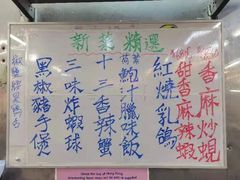 新菜精選
香麻炒蜆
甜香麻辣蝦
紅燒乳鴿
荷葉鮑汁臘味飯
十三香辣蟹
三味炸蝦球
黑椒豬手煲